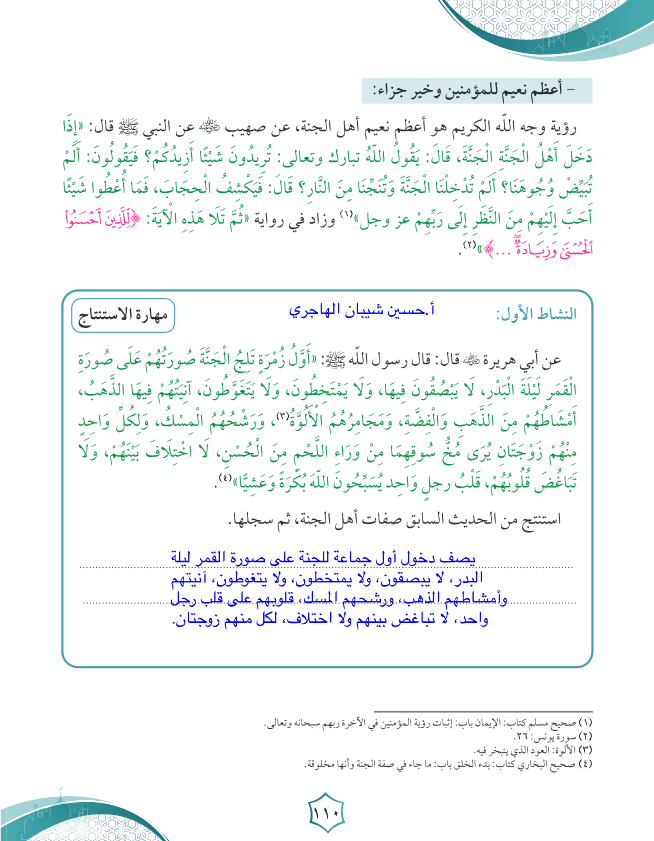 - أعظم نعيم للمؤمنين وخير جزاء:
رؤية وجه اللّه الكريم هو أعظم نعيم أهل الجنة، عن صهيب رضي الله عنه عن النبي ﷺ قال: «إِذَا
دَخَلَ أَهْلُ الْجَنَّةِ الْجَنَّةَ، قَالَ: يَقُولُ اللهُ تبارك وتعالى: تُرِيدُونَ شَيْئًا أَزِيدُكُمْ؟ فَيَقُولُونَ: أَلَمْ
تُبَيِّضْ وُجُوهَنَا؟ أَلَمْ تُدْخِلْنَا الْجَنَّةَ وَتُنَجِّنَا مِنَ النَّارِ؟ قَالَ: فَيَكْشِفُ الْحِجَابَ، فَمَا أُعْطُوا شَيْئًا
أَحَبَّ إِلَيْهِمْ مِنَ النَّظَرِ إِلَى رَبِّهِمْ عز وجل»(١) وزاد في رواية «ثُمَّ تَلَا هَذِهِ الْآيَةَ: ﴿لِّلَّذِينَ أَحْسَنُوا۟
الْحُسْنَىٰ وَزِيَادَةٌ ۖ ...﴾»(٢).
النشاط الأول:
أ.حسين شيبان الهاجري
مهارة الاستنتاج
عن أبي هريرة رضي الله عنه قال: قال رسول اللّه ﷺ: «أَوَّلُ زُمْرَةٍ تَلِجُ الْجَنَّةَ صُورَتُهُمْ عَلَى صُورَةِ
الْقَمَرِ لَيْلَةَ الْبَدْرِ، لَا يَبْصُقُونَ فِيهَا، وَلَا يَمْتَخِطُونَ، وَلَا يَتَغَوَّطُونَ، آنِيَتُهُمْ فِيهَا الذَّهَبُ،
أَمْشَاطُهُمْ مِنَ الذَّهَبِ وَالْفِضَّةِ، وَمَجَامِرُهُمُ الْأَلُوَّةُ(٣)، وَرَشْحُهُمُ الْمِسْكُ، وَلِكُلِّ وَاحِدٍ
مِنْهُمْ زَوْجَتَانِ يُرَى مُخُّ سُوقِهِمَا مِنْ وَرَاءِ اللَّحْمِ مِنَ الْحُسْنِ، لَا اخْتِلَافَ بَيْنَهُمْ، وَلَا
تَبَاغُضَ قُلُوبُهُمْ، قَلْبُ رجلٍ وَاحِد يُسَبِّحُونَ اللّهَ بُكْرَةً وَعَشِيًّا»(٤).
استنتج من الحديث السابق صفات أهل الجنة، ثم سجلها.
يصف دخول أول جماعة للجنة على صورة القمر ليلة
البدر، لا يبصقون، ولا يمتخطون، ولا يتغوطون، آنيتهم
وأمشاطهم الذهب، ورشحهم المسك، قلوبهم على قلب رجل
واحد، لا تباغض بينهم ولا اختلاف، لكل منهم زوجتان.
(١) صحيح مسلم كتاب: الإيمان باب: إثبات رؤية المؤمنين في الآخرة ربهم سبحانه وتعالى.
(٢) سورة يونس: ٢٦.
(٣) الألوة: العود الذي يتبخر فيه.
(٤) صحيح البخاري كتاب: بدء الخلق باب: ما جاء في صفة الجنة وأنها مخلوقة.
١١٠